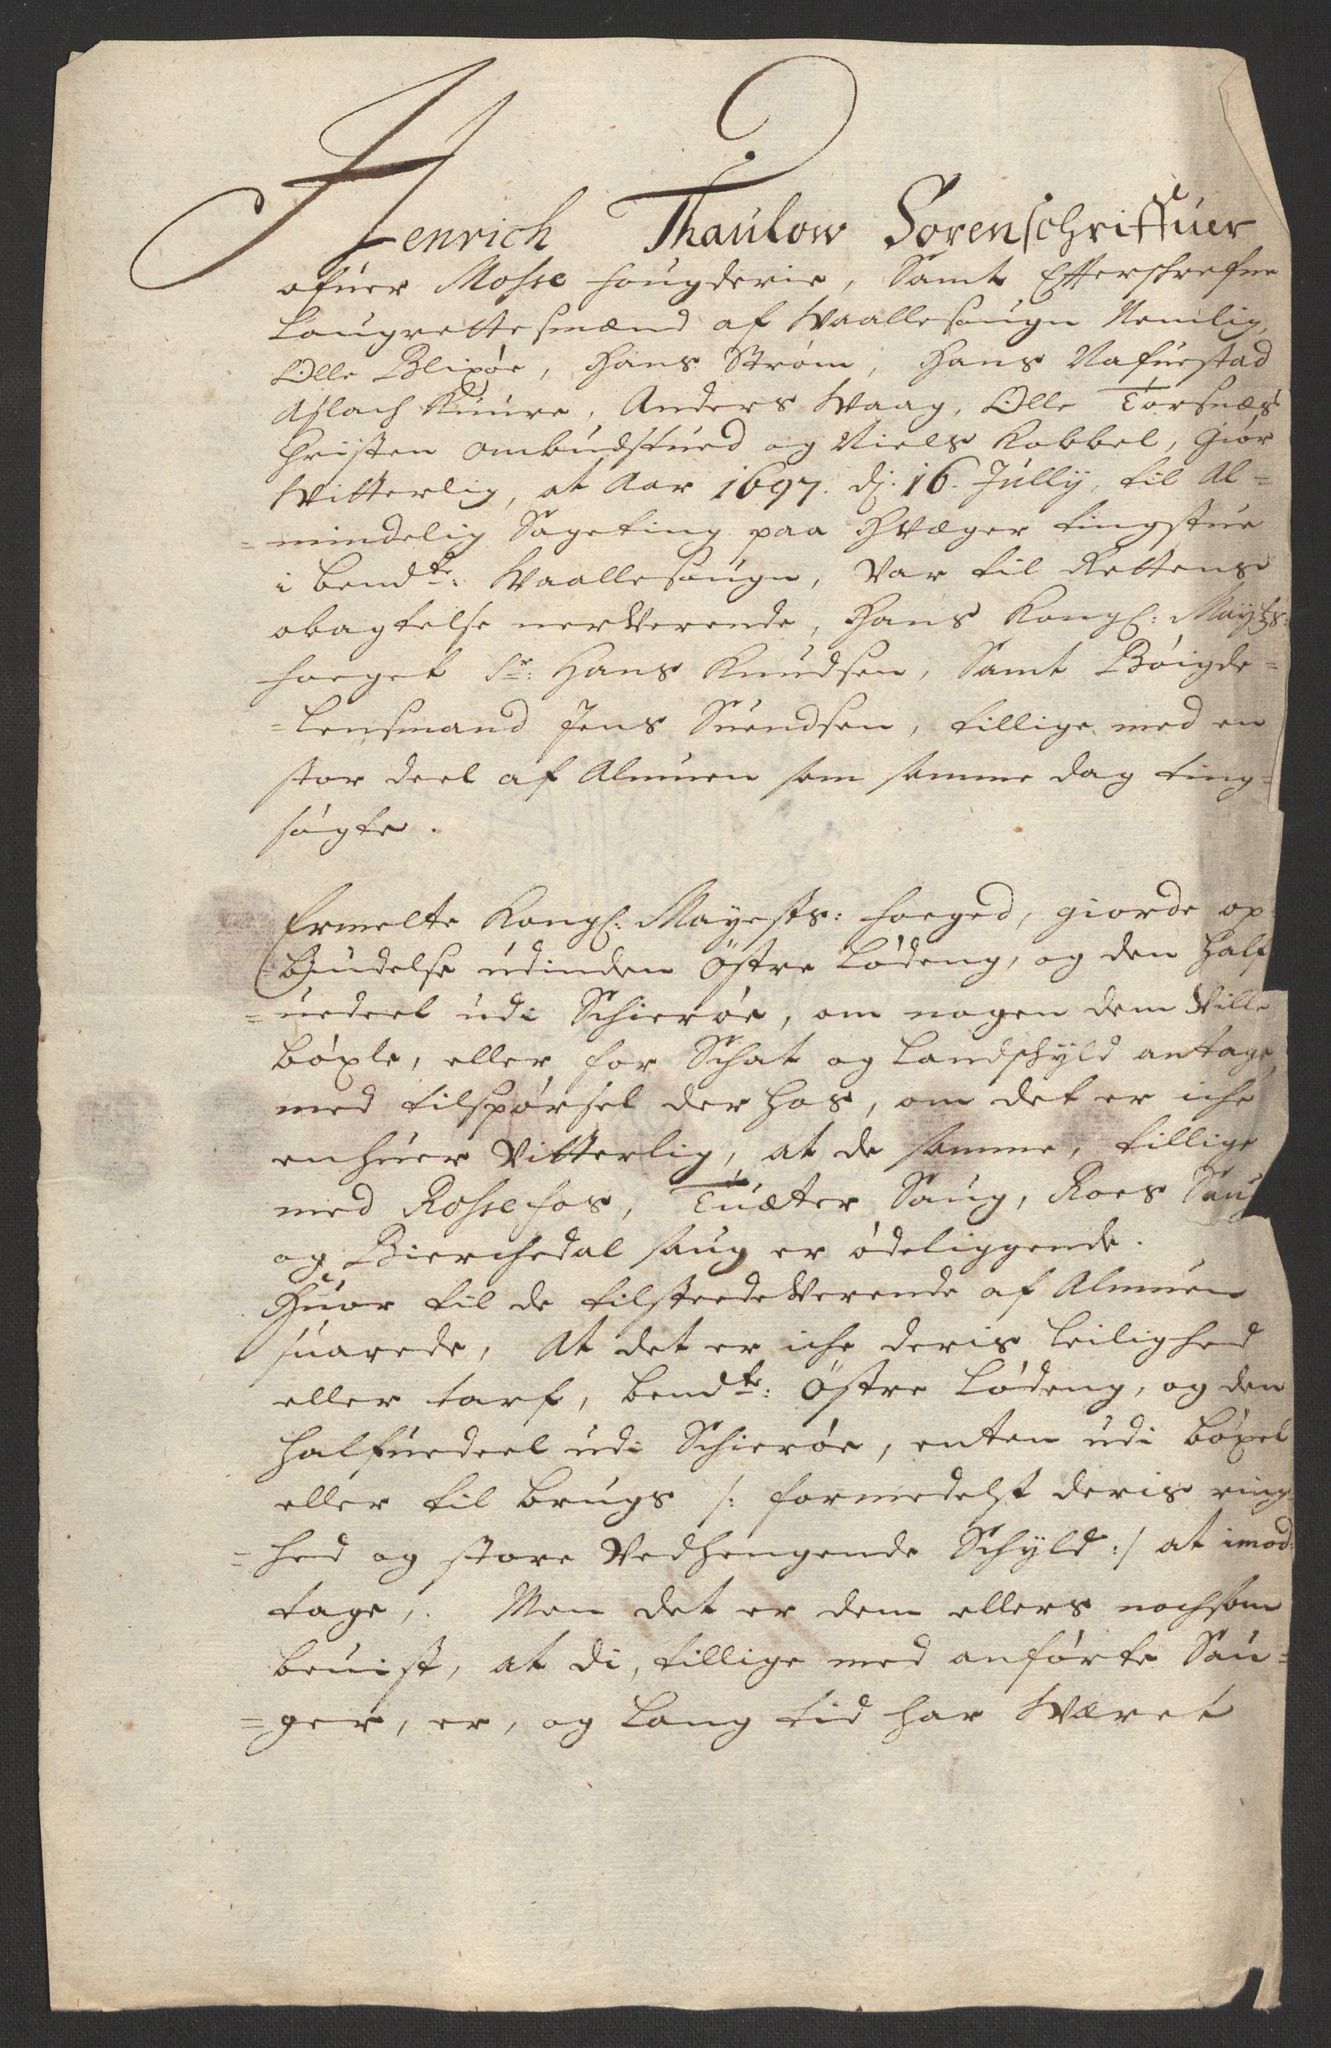 Henrich Thaulow Sorenschriffuer
ofuer Mosse fougderie, Samt Efterschrefne
Laugrettesmænd af Waallesougn Nemlig,
Olle Blixøe, Hans Strøm, Hans Nafuestad
Aslach Kuure, Anders Waag, Olle Torsnæs
Christen Ombudstued og Niels Kobbel, Giør
Witterlig, at Aar 1697. dj. 16. Jully, til Al-
=mindelig Sageting paa Hvæger tingstue
i bendte: Waallesougn, Var til Rettens
obagtelse nerVerende, Hans Kongl: Mayts:
foeget Sr: Hans Knudsen, Samt Bøigde-
=Lensmand Jens Suendsen, tillige med en
stor deel af Almuen som samme dag ting-
søgte.
Ermelte Kongl: Mayests: foeged, giorde op
biudelse udinden Østre Lødeng, og den Half
=uedeel udi Schierøe, om nogen dem Ville
bøxle, eller for Schat og Landschyld antage,
med tilspørsel der hos, om det er iche
enhuer Vitterlig, at de samme, tillige
med Rossefos, Tuæter Saug, Roes Saug
og Bierchedal saug er ødeliggende.
Huor til de tilsteedeVerende af Almuen
suarede, At det er iche deris leilighed
eller tarf, bendte: Østre Lødeng, og den
halfuedeel udi Schierøe, enten udi bøxel
eller til brugs /: formedelst deris ring-
=hed og store Vedhengende Schyld :/ at imod
tage,. Men det er dem ellers nochsom
beuist, at di, tillige med anførte Sau=
=ger, er, og lang tid har Wæret